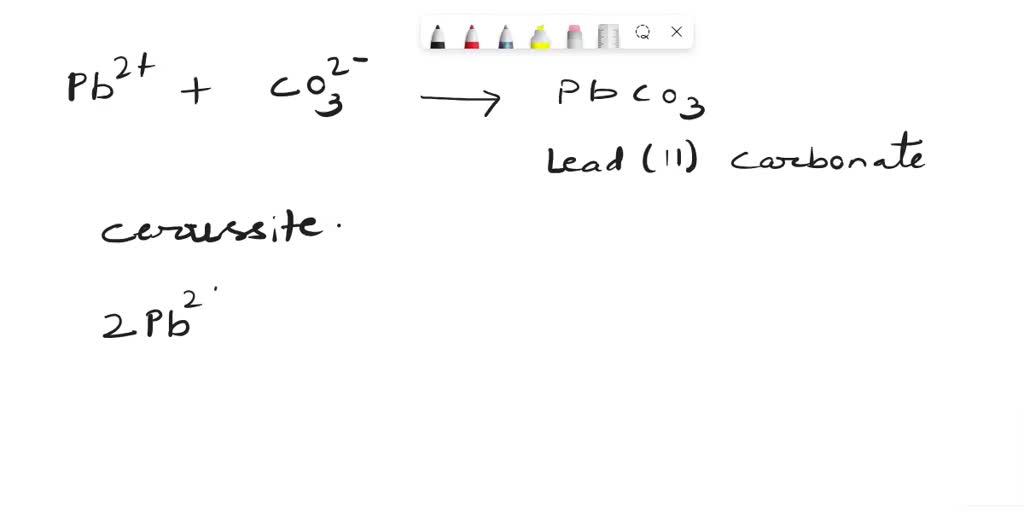 Pb²⁺ + CO₃²⁻ → PbCO₃
Lead (II) carbonate
cerussite.
2Pb²